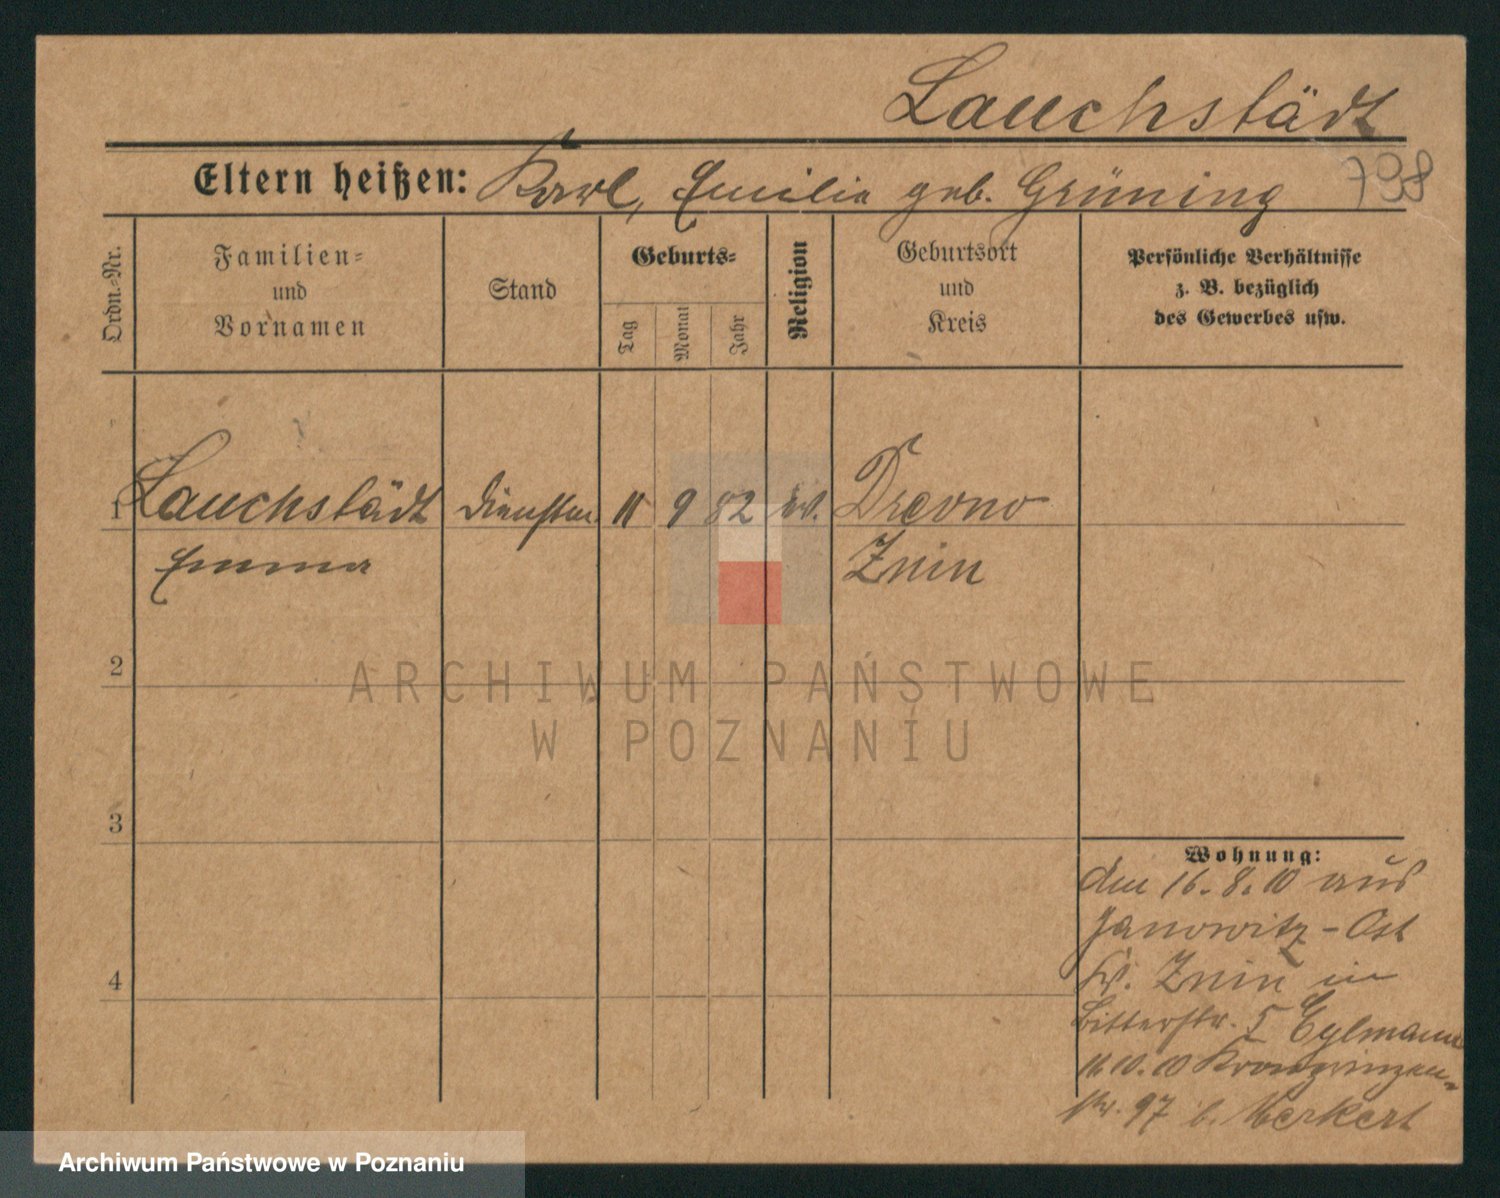 Lauchstädt
Eltern heißen: Karl, Emilie geb. Grüning
798
Ordn.-Nr.
Familien-
und
Vornamen
Stand
Geburts-
Tag
Monat
Jahr
Religion
Geburtsort
und
Kreis
Persönliche Verhältnisse
z. B. bezüglich
des Gewerbes usw.
1 Lauchstädt Dienstm. 11 9 82 ev. Drevno
Emma Znin
2
3
4
Wohnung:
den 16. 8. 10 aus
Janowitz-Ost
Kr. Znin in
Ritterstr. 5 Eylmann
11.10.10 Kronprinzen-
str. 97 b. Merkert
ARCHIWUM PAŃSTWOWE
W POZNANIU
Archiwum Państwowe w Poznaniu